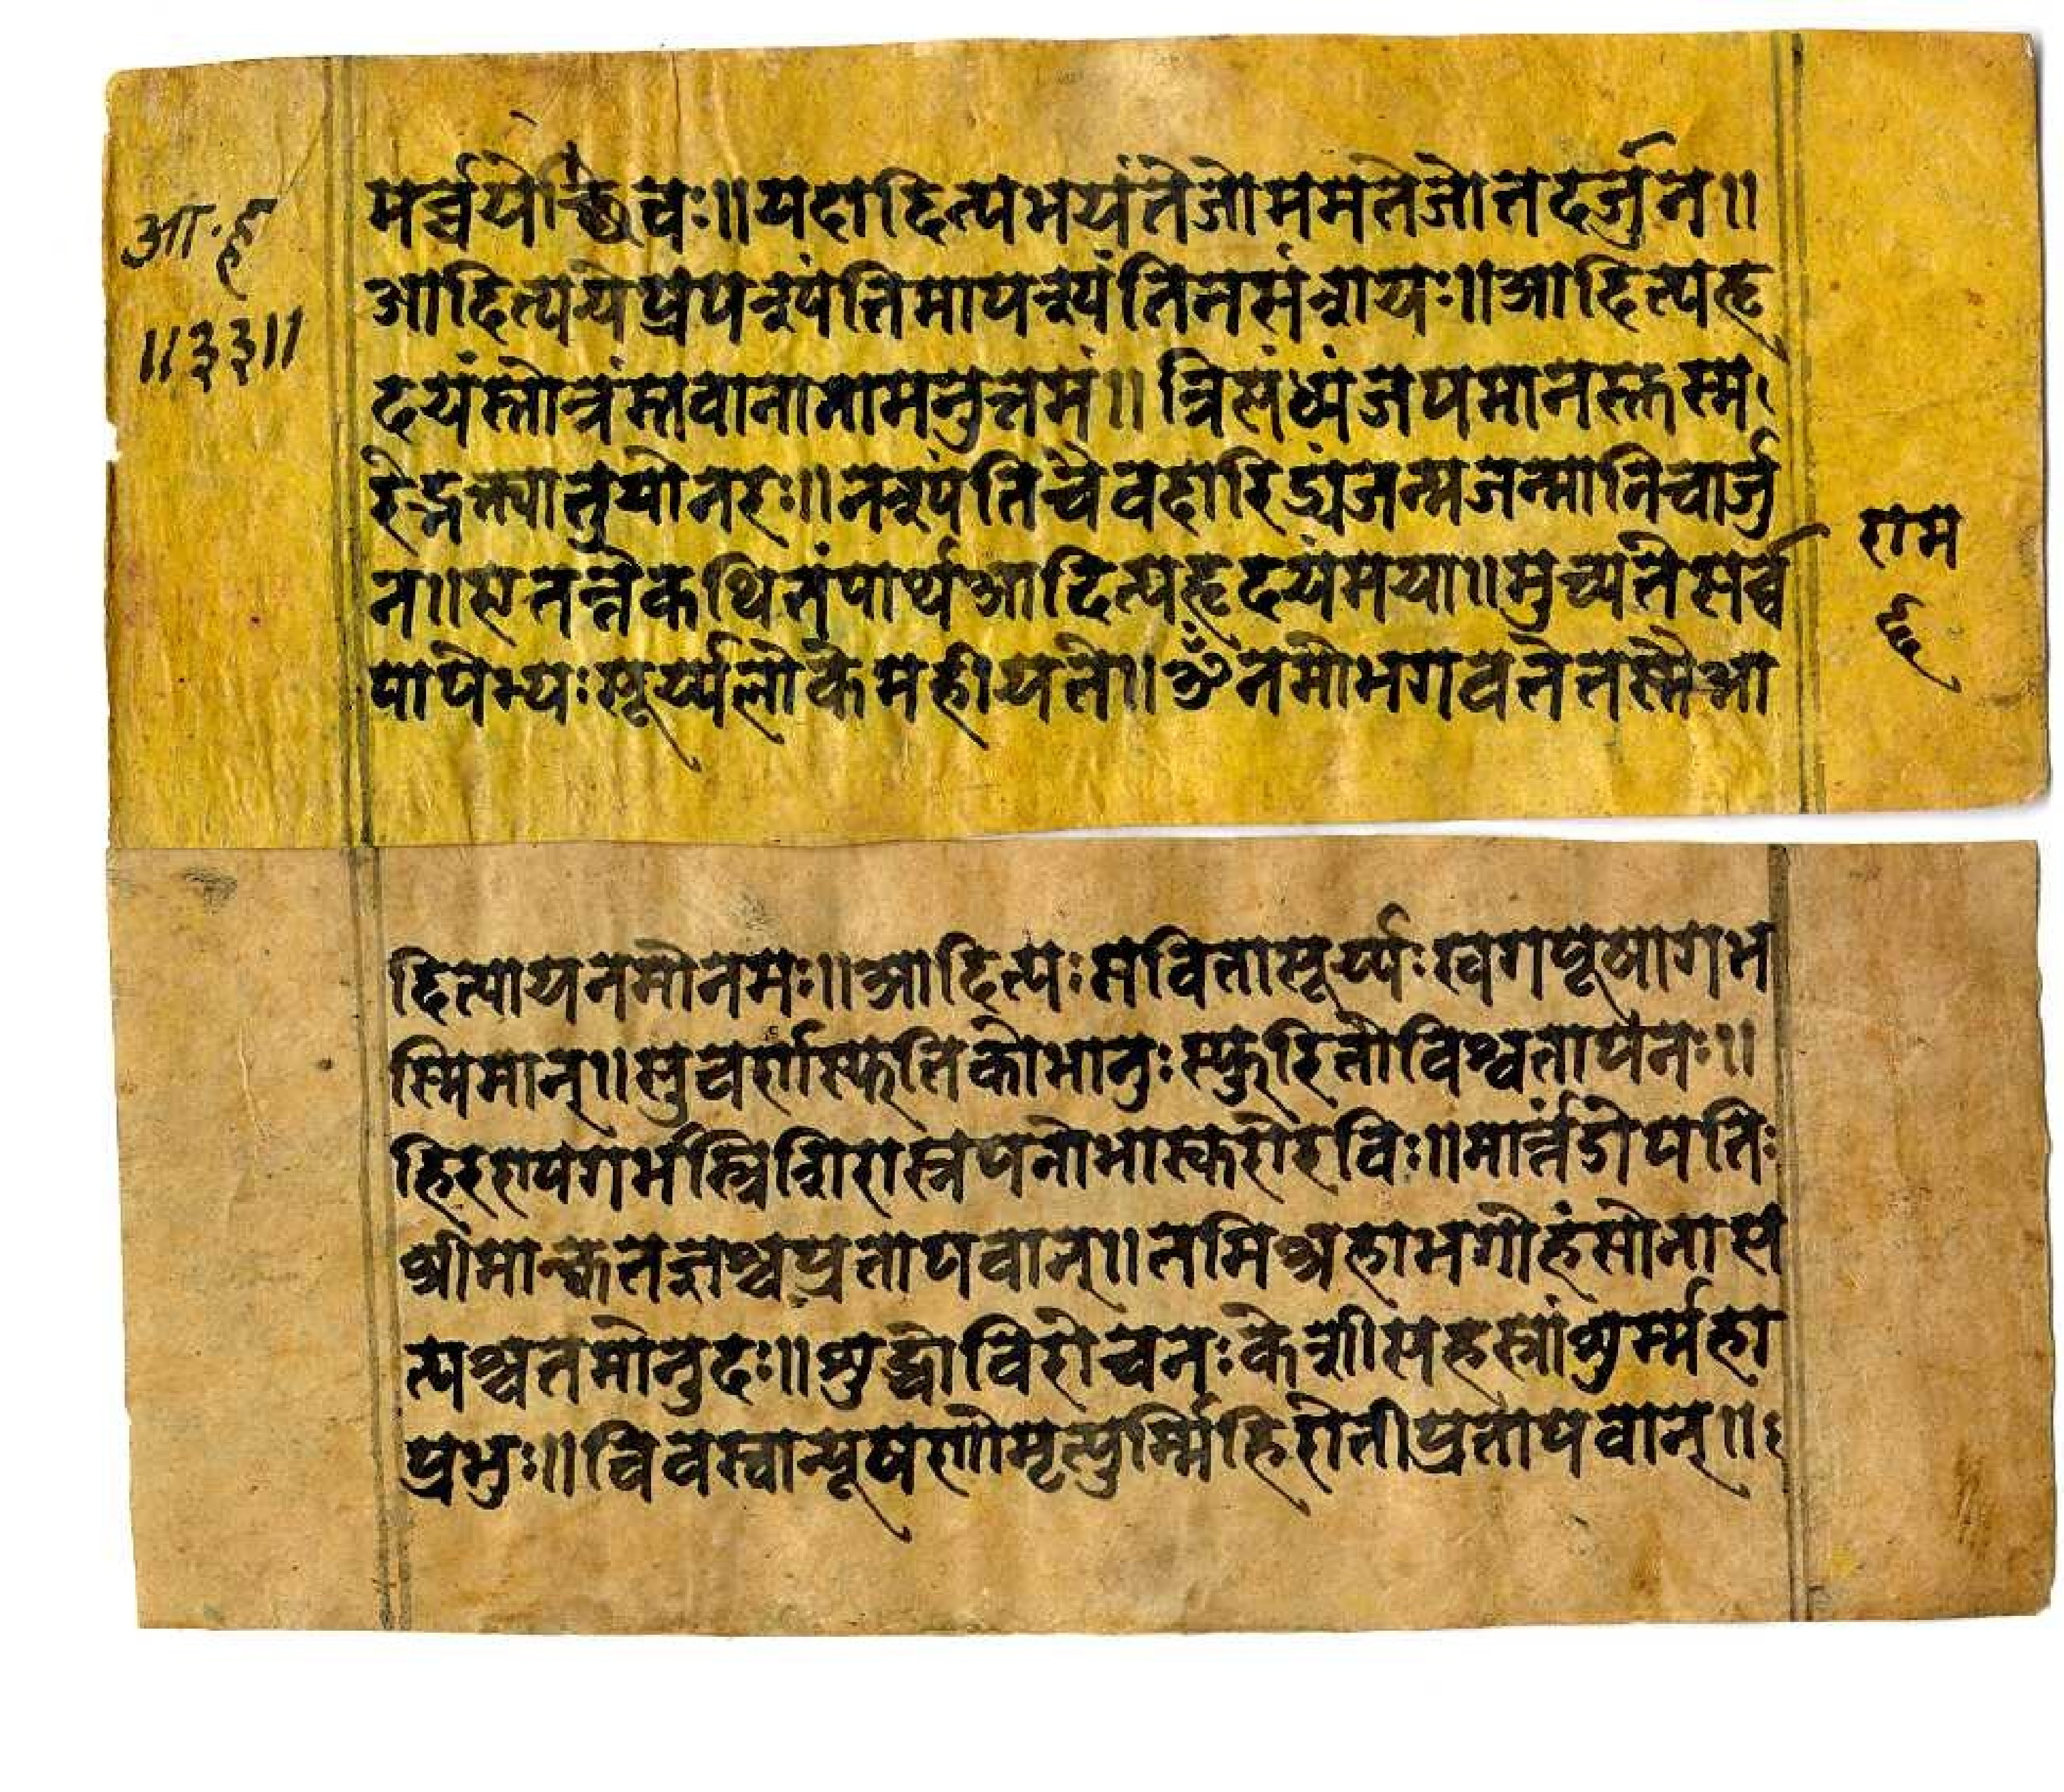 आ.हृ
॥३३॥
मर्च्चयेच्छिवः॥यदादित्यभयंतेजोममतेजोतदर्जुन॥
आदित्यंयेप्रपश्यंतिमापश्यंतिनसंशयः॥आदित्यहृ
दयंस्तोत्रंस्तवानानामनुत्तमं॥त्रिसंध्यंजपमानस्तस्म
रेद्भक्त्यातुयोनरः॥नश्यंतिचैवदारिद्र्यंजन्मजन्मानिचार्जु
न॥एतत्तेकथितंपार्थआदित्यहृदयंमया॥मुच्यतेसर्व्व
पापेभ्यःसूर्य्यलोकेमहीयते॥ॐनमोभगवतेतस्मैआ
राम
दित्यायनमोनमः॥आदित्यःसवितासूर्य्यःखगपूषागभ
स्मिमान्॥सुवर्णस्फतिकोभानुःस्फुरितोविश्वतापनः॥
हिरण्यगर्भस्त्रिशिरास्तपनोभास्करोरविः॥मार्त्तंडोपतिः
श्रीमान्कृतज्ञश्चप्रतापवान्॥तमिश्रहाभगोहंसोनास
त्यश्चतमोनुदः॥शुद्धोविरोचनःकेशीसहस्त्रांशुर्म्महा
प्रभुः॥विवस्वान्पूषणोमृत्युर्म्मिहिरोतीप्रतापवान्॥